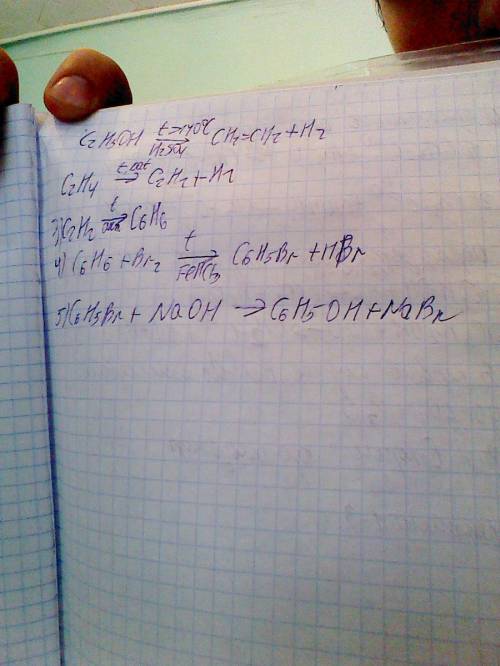 C2H5OH t>140°C H2SO4 → CH2=CH2 + H2
C2H4 t, cat → C2H2 + H2
3) C2H2 t → C6H6
4) C6H6 + Br2 t FeCl3 → C6H5Br + HBr
5) C6H5Br + NaOH → C6H5-OH + NaBr